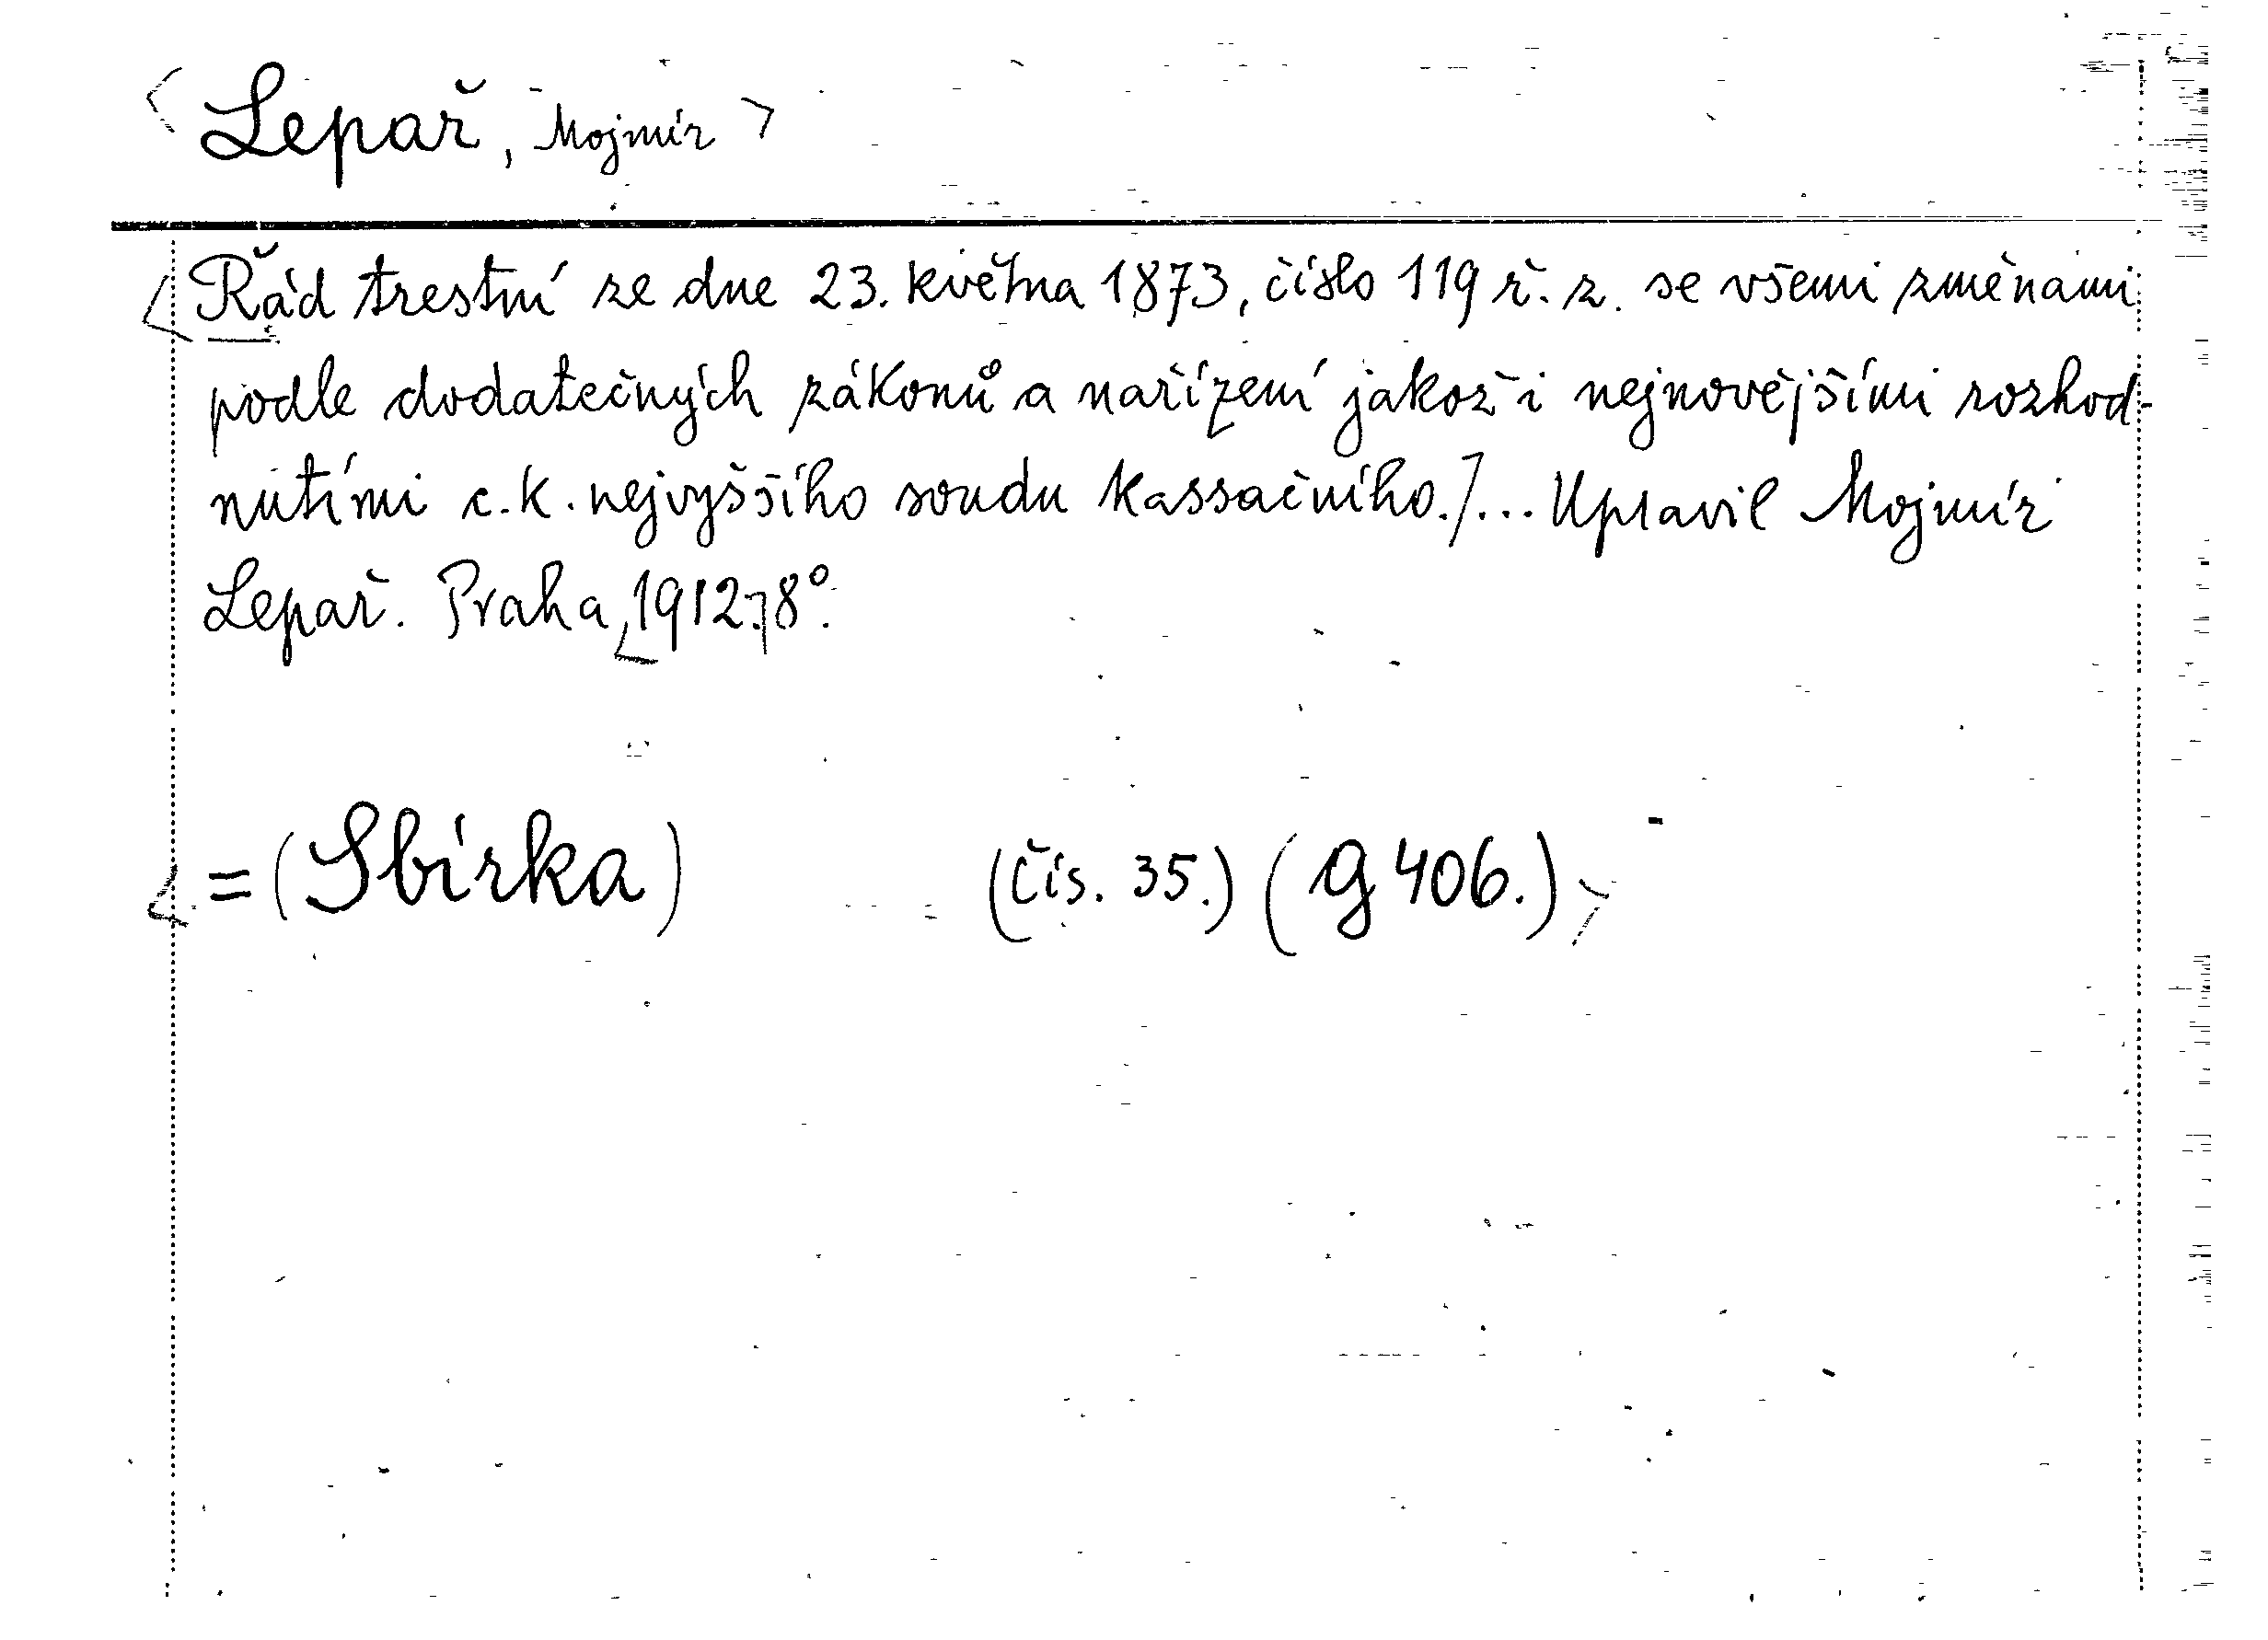 < Lepař, Mojmír >
< Řád trestní ze dne 23. května 1873, číslo 119 ř. z. se všemi změnami
podle dodatečných zákonů a nařízení jakož i nejnovějšími rozhod-
nutími c. k. nejvyššího soudu kassačního./... Upravil Mojmír
Lepař. Praha, 1912. 8°.
< = (Sbírka) (čís. 35.) (g 406.) >